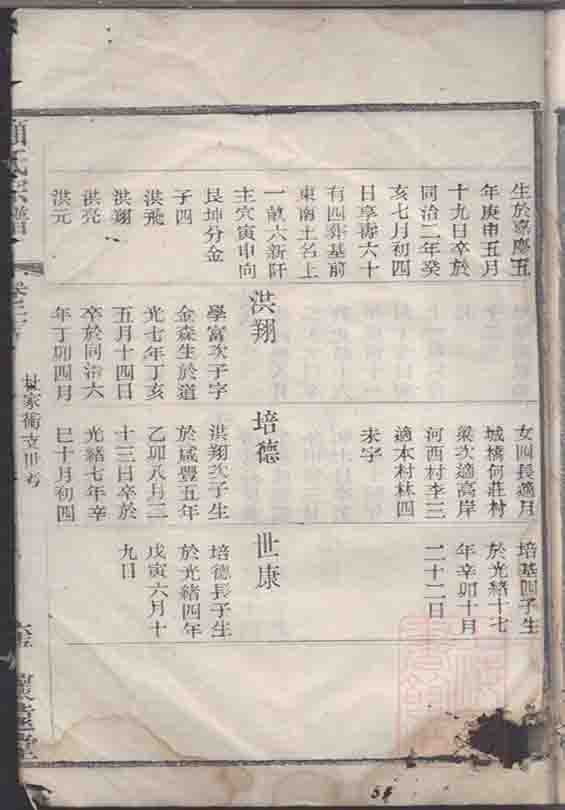 生於嘉慶五
年庚申五月
十九日卒於
同治二年癸
亥七月初四
日享壽六十
有四葬基前
東南土名上
一畝六新阡
主穴寅申向
艮坤分金
子四
洪飛
洪翔
洪亮
洪元
洪翔
學富次子字
金森生於道
光七年丁亥
五月十四日
卒於同治六
年丁卯四月
女四長適月
城橋何莊村
梁次適高岸
河西村李三
適本村林四
未字
培德
洪翔次子生
於咸豐五年
乙卯八月二
十三日卒於
光緒七年辛
巳十月初四
培基四子生
於光緒十七
年辛卯十月
二十二日
世康
培德長子生
於光緒四年
戊寅六月十
九日
氏宗譜
家衖支世考
54